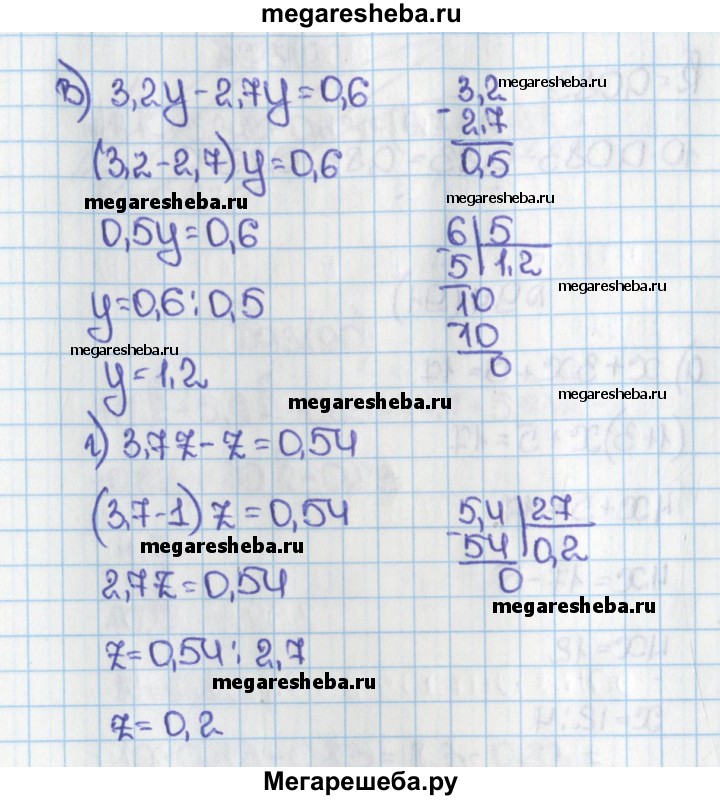 megaresheba.ru
в) 3,2y - 2,7y = 0,6
3,2
megaresheba.ru
- 2,7
0,5
(3,2 - 2,7) y = 0,6
megaresheba.ru
megaresheba.ru
0,5y = 0,6
6 | 5
- 5 | 1,2
megaresheba.ru
10
- 10
0
y = 0,6 : 0,5
megaresheba.ru
y = 1,2
megaresheba.ru
megaresheba.ru
г) 3,7z - z = 0,54
(3,7 - 1) z = 0,54
5,4 | 27
- 54 | 0,2
0
megaresheba.ru
megaresheba.ru
2,7z = 0,54
z = 0,54 : 2,7
megaresheba.ru
z = 0,2
Мегарешеба.ру